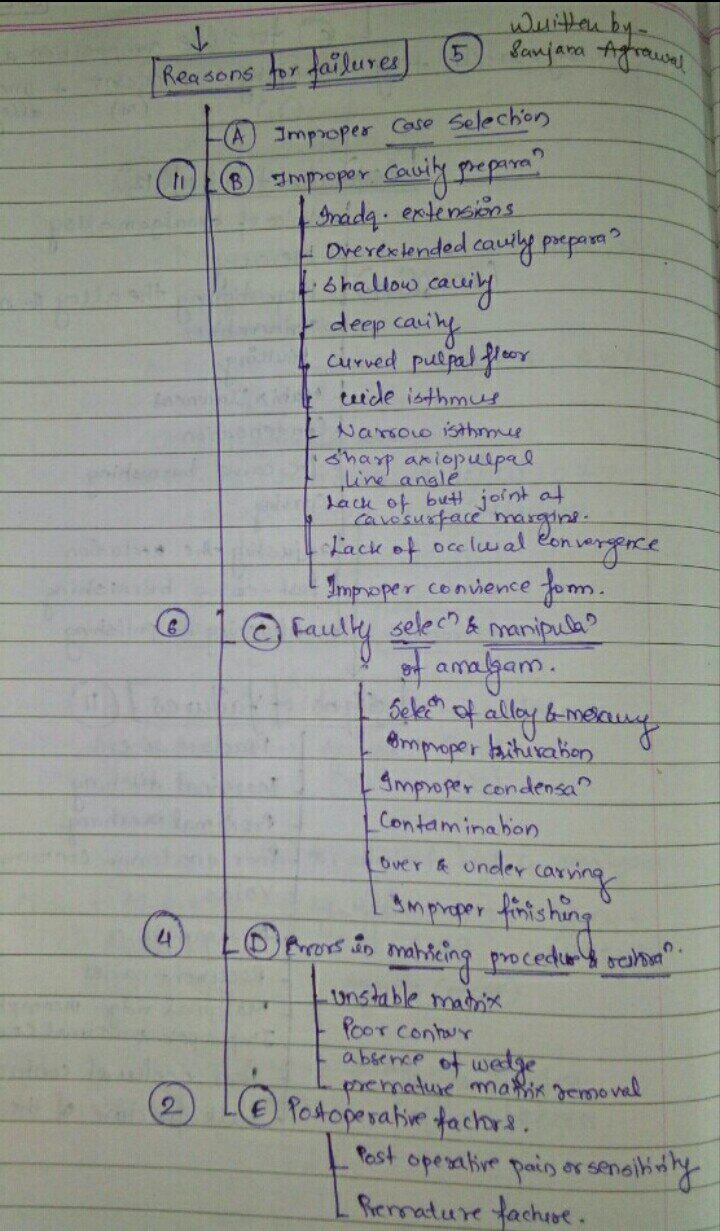 Written by -
Sanjana Agrawal
Reasons for failures
5
A Improper case selection
11 B Improper cavity preparaⁿ
Inadq. extensions
Overextended cavity preparaⁿ
Shallow cavity
deep cavity
curved pulpal floor
wide isthmus
Narrow isthmus
Sharp axiopulpal
line angle
Lack of butt joint at
cavosurface margins.
Lack of occlusal convergence
Improper convience form.
6 C Faulty selecⁿ & manipulaⁿ
of amalgam.
Selecⁿ of alloy & mercury
Improper trituration
Improper condensaⁿ
Contamination
over & under carving
Improper finishing
4 D Errors in matricing procedure & restoraⁿ.
unstable matrix
Poor contour
absence of wedge
premature matrix removal
2 E Postoperative factors.
Post operative pain or sensitivity
Premature facture.